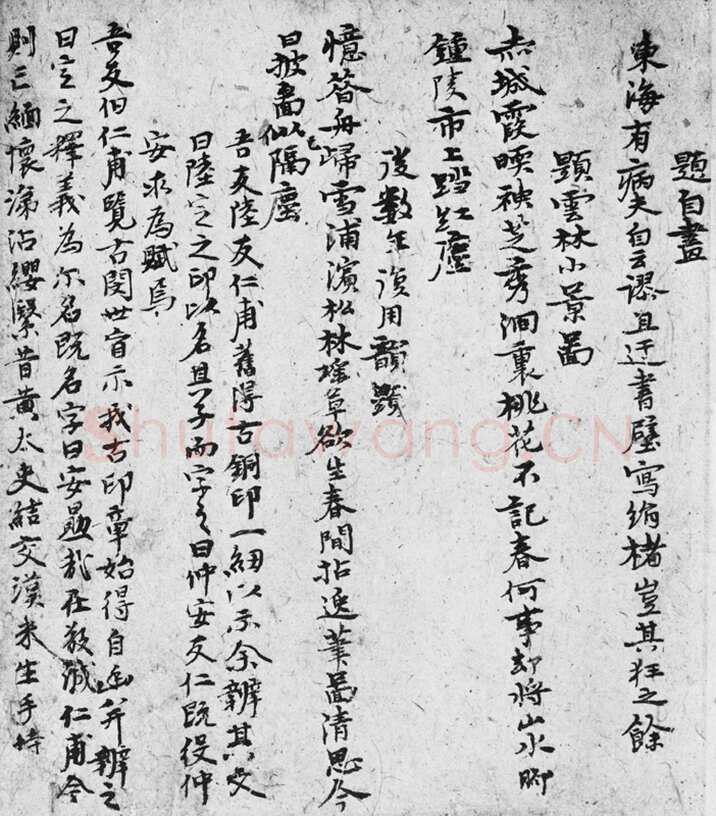 題自畫
東海有病夫自云謬且迂書壁寫絹楮豈其狂之餘
題雲林小景圖
赤城霞暎袂芝秀澗裏桃花不記春何事却將山水脚
鍾陵市上蹈紅塵
後數年復用韻題
憶昔舟歸雪浦濱松林瑤草欲生春間拈逸筆圖清思今
日披圖似已隔塵
吾友陸友仁甫舊得古銅印一紐以示余辨其文
曰陸定之印以名且子而字之曰仲安友仁既役仲
安求為賦焉
吾友伯仁甫覽古閱世示我古印章始得自幽并辨之
曰定之釋義為尔名既名字曰安勗哉在敬誠仁甫今
則亡緬懷涕沾纓繄昔黃太史結交漢米生手持
Shufawang.CN